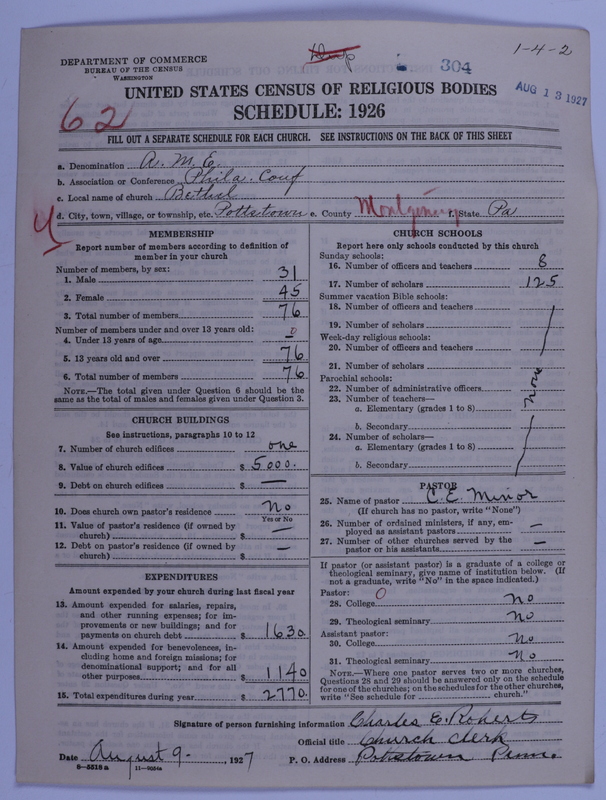 DEPARTMENT OF COMMERCE
BUREAU OF THE CENSUS
WASHINGTON
304
1-4-2
AUG 13 1927
UNITED STATES CENSUS OF RELIGIOUS BODIES
SCHEDULE: 1926
62
FILL OUT A SEPARATE SCHEDULE FOR EACH CHURCH. SEE INSTRUCTIONS ON THE BACK OF THIS SHEET
a. Denomination A. M. E.
b. Association or Conference Phila. Conf
c. Local name of church Bethel
d. City, town, village, or township, etc. Pottstown e. County Montgomery f. State Pa
MEMBERSHIP
Report number of members according to definition of
member in your church
Number of members, by sex:
1. Male 31
2. Female 45
3. Total number of members 76
Number of members under and over 13 years old:
4. Under 13 years of age 0
5. 13 years old and over 76
6. Total number of members 76
NOTE.—The total given under Question 6 should be the
same as the total of males and females given under Question 3.
CHURCH BUILDINGS
See instructions, paragraphs 10 to 12
7. Number of church edifices one
8. Value of church edifices $ 5000.
9. Debt on church edifices $ —
10. Does church own pastor's residence No
Yes or No
11. Value of pastor's residence (if owned by
church) $ —
12. Debt on pastor's residence (if owned by
church) $ —
EXPENDITURES
Amount expended by your church during last fiscal year
13. Amount expended for salaries, repairs,
and other running expenses; for im-
provements or new buildings; and for
payments on church debt $ 1630.
14. Amount expended for benevolences, in-
cluding home and foreign missions; for
denominational support; and for all
other purposes $ 1140
15. Total expenditures during year $ 2770.
CHURCH SCHOOLS
Report here only schools conducted by this church
Sunday schools:
16. Number of officers and teachers 8
17. Number of scholars 125
Summer vacation Bible schools:
18. Number of officers and teachers
19. Number of scholars
Week-day religious schools:
20. Number of officers and teachers
21. Number of scholars
Parochial schools:
22. Number of administrative officers
none
23. Number of teachers—
a. Elementary (grades 1 to 8)
b. Secondary
24. Number of scholars—
a. Elementary (grades 1 to 8)
b. Secondary
PASTOR
25. Name of pastor C. E. Minor
(If church has no pastor, write "None")
26. Number of ordained ministers, if any, em-
ployed as assistant pastors —
27. Number of other churches served by the
pastor or his assistants —
If pastor (or assistant pastor) is a graduate of a college or
theological seminary, give name of institution below. (If
not a graduate, write "No" in the space indicated.)
Pastor: 0
28. College no
29. Theological seminary no
Assistant pastor:
30. College No
31. Theological seminary No
NOTE.—Where one pastor serves two or more churches,
Questions 28 and 29 should be answered only on the schedule
for one of the churches; on the schedules for the other churches,
write "See schedule for church."
Signature of person furnishing information Charles E. Roberts
Official title Church Clerk
Date August 9 -, 1927 P. O. Address Pottstown Penn.
8—5518 a 11—9054a